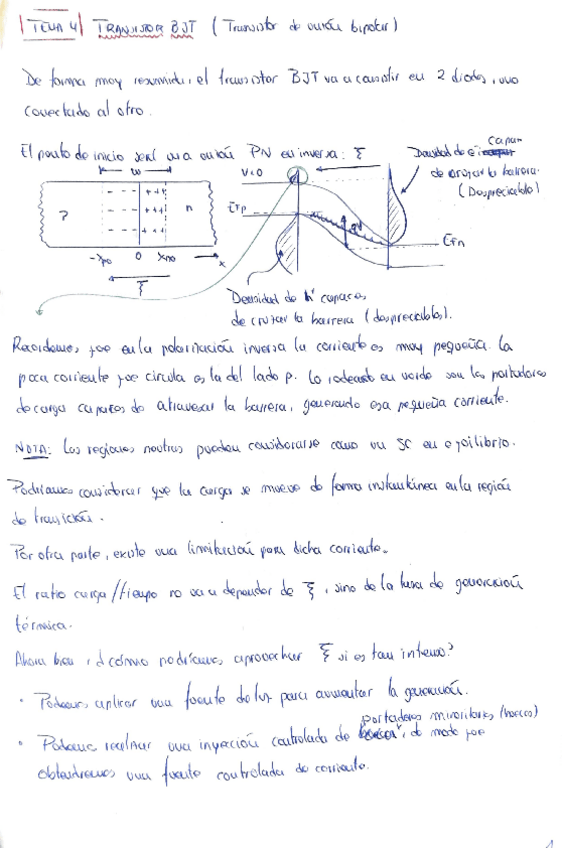 TEMA 4 TRANSISTOR BJT (Transistor de unión bipolar)
De forma muy resumida, el transistor BJT va a consistir en 2 diodos, uno
conectado al otro.
El punto de inicio será una unión PN en inversa: ξ
w
- - - + + +
- - - + + +
- - - + + +
? n
-xpo 0 xno x
ξ
V<0
EFp
EFn
qV
Densidad de e⁻ capaces
de cruzar la barrera.
(Despreciable)
Densidad de h⁺ capaces
de cruzar la barrera (despreciable).
Recordemos que en la polarización inversa la corriente es muy pequeña. La
poca corriente que circula es la del lado p. Lo rodeado en verde son los portadores
de carga capaces de atravesar la barrera, generando esa pequeña corriente.
NOTA: Las regiones neutras pueden considerarse como un SC en equilibrio.
Podríamos considerar que la carga se mueve de forma instantánea en la región
de transición.
Por otra parte, existe una limitación para dicha corriente.
El ratio carga/tiempo no va a depender de ξ, sino de la tasa de generación
térmica.
Ahora bien, ¿cómo podríamos aprovechar ξ si es tan intenso?
· Podemos aplicar una fuente de luz para aumentar la generación.
portadores minoritarios (huecos)
· Podemos realizar una inyección controlada de, de modo que
obtendremos una fuente controlada de corriente.
1